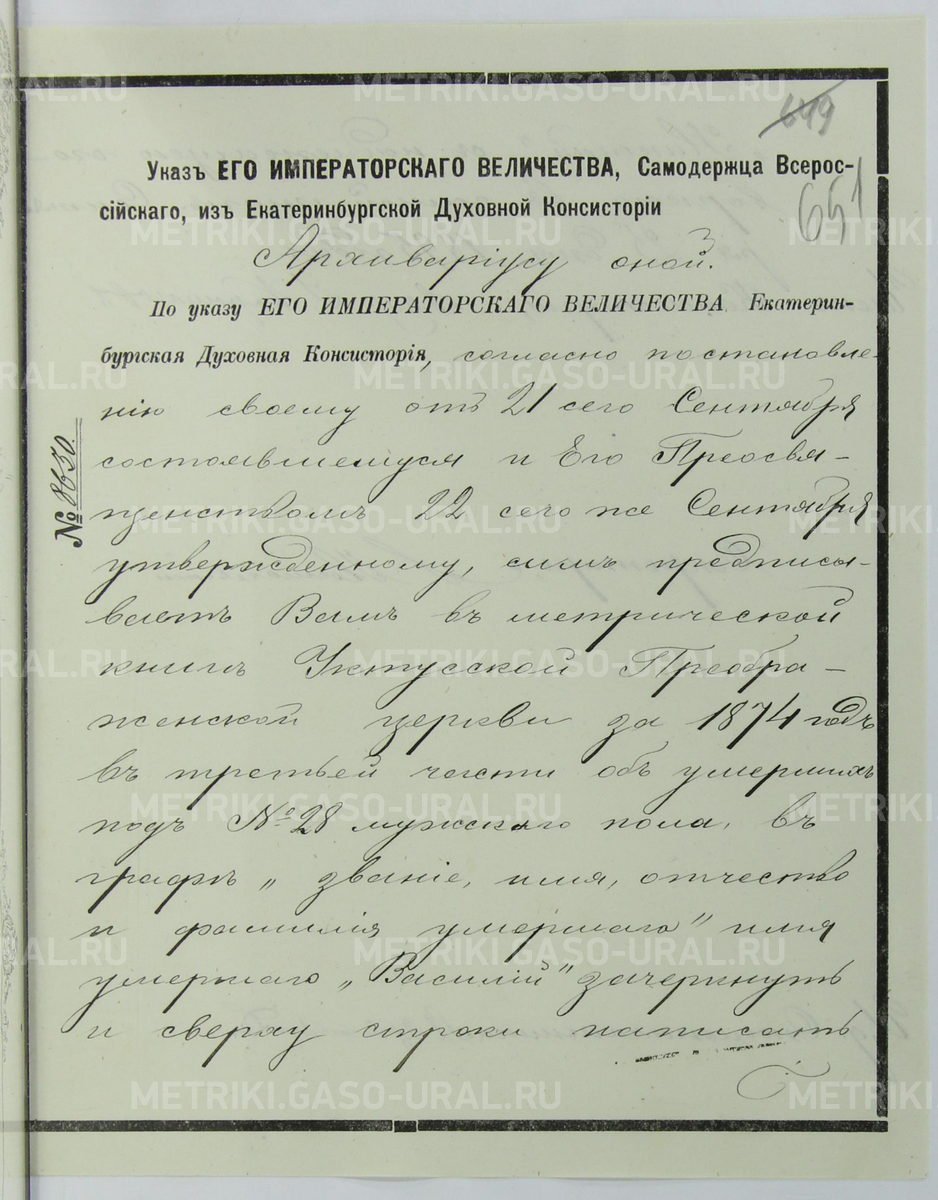 649
651
Указъ ЕГО ИМПЕРАТОРСКАГО ВЕЛИЧЕСТВА, Самодержца Всерос-
сійскаго, изъ Екатеринбургской Духовной Консисторіи
Архиваріусу оной.
По указу ЕГО ИМПЕРАТОРСКАГО ВЕЛИЧЕСТВА Екатерин-
бургская Духовная Консисторія, согласно постановле-
нію своему отъ 21 сего Сентября
состоявшемуся и Его Преосвя-
щенствомъ 22 сего же Сентября
утвержденному, симъ предписы-
ваетъ Вамъ въ метрической
книгѣ Уктусской Преобра-
женской церкви за 1874 годъ
въ третьей части объ умершихъ
подъ № 28 мужскаго пола, въ
графѣ „званіе, имя, отчество
и фамилія умершаго" имя
умершаго „Василій" зачеркнуть
и сверху строки написать
№ 8630.
METRIKI.GASO-URAL.RU